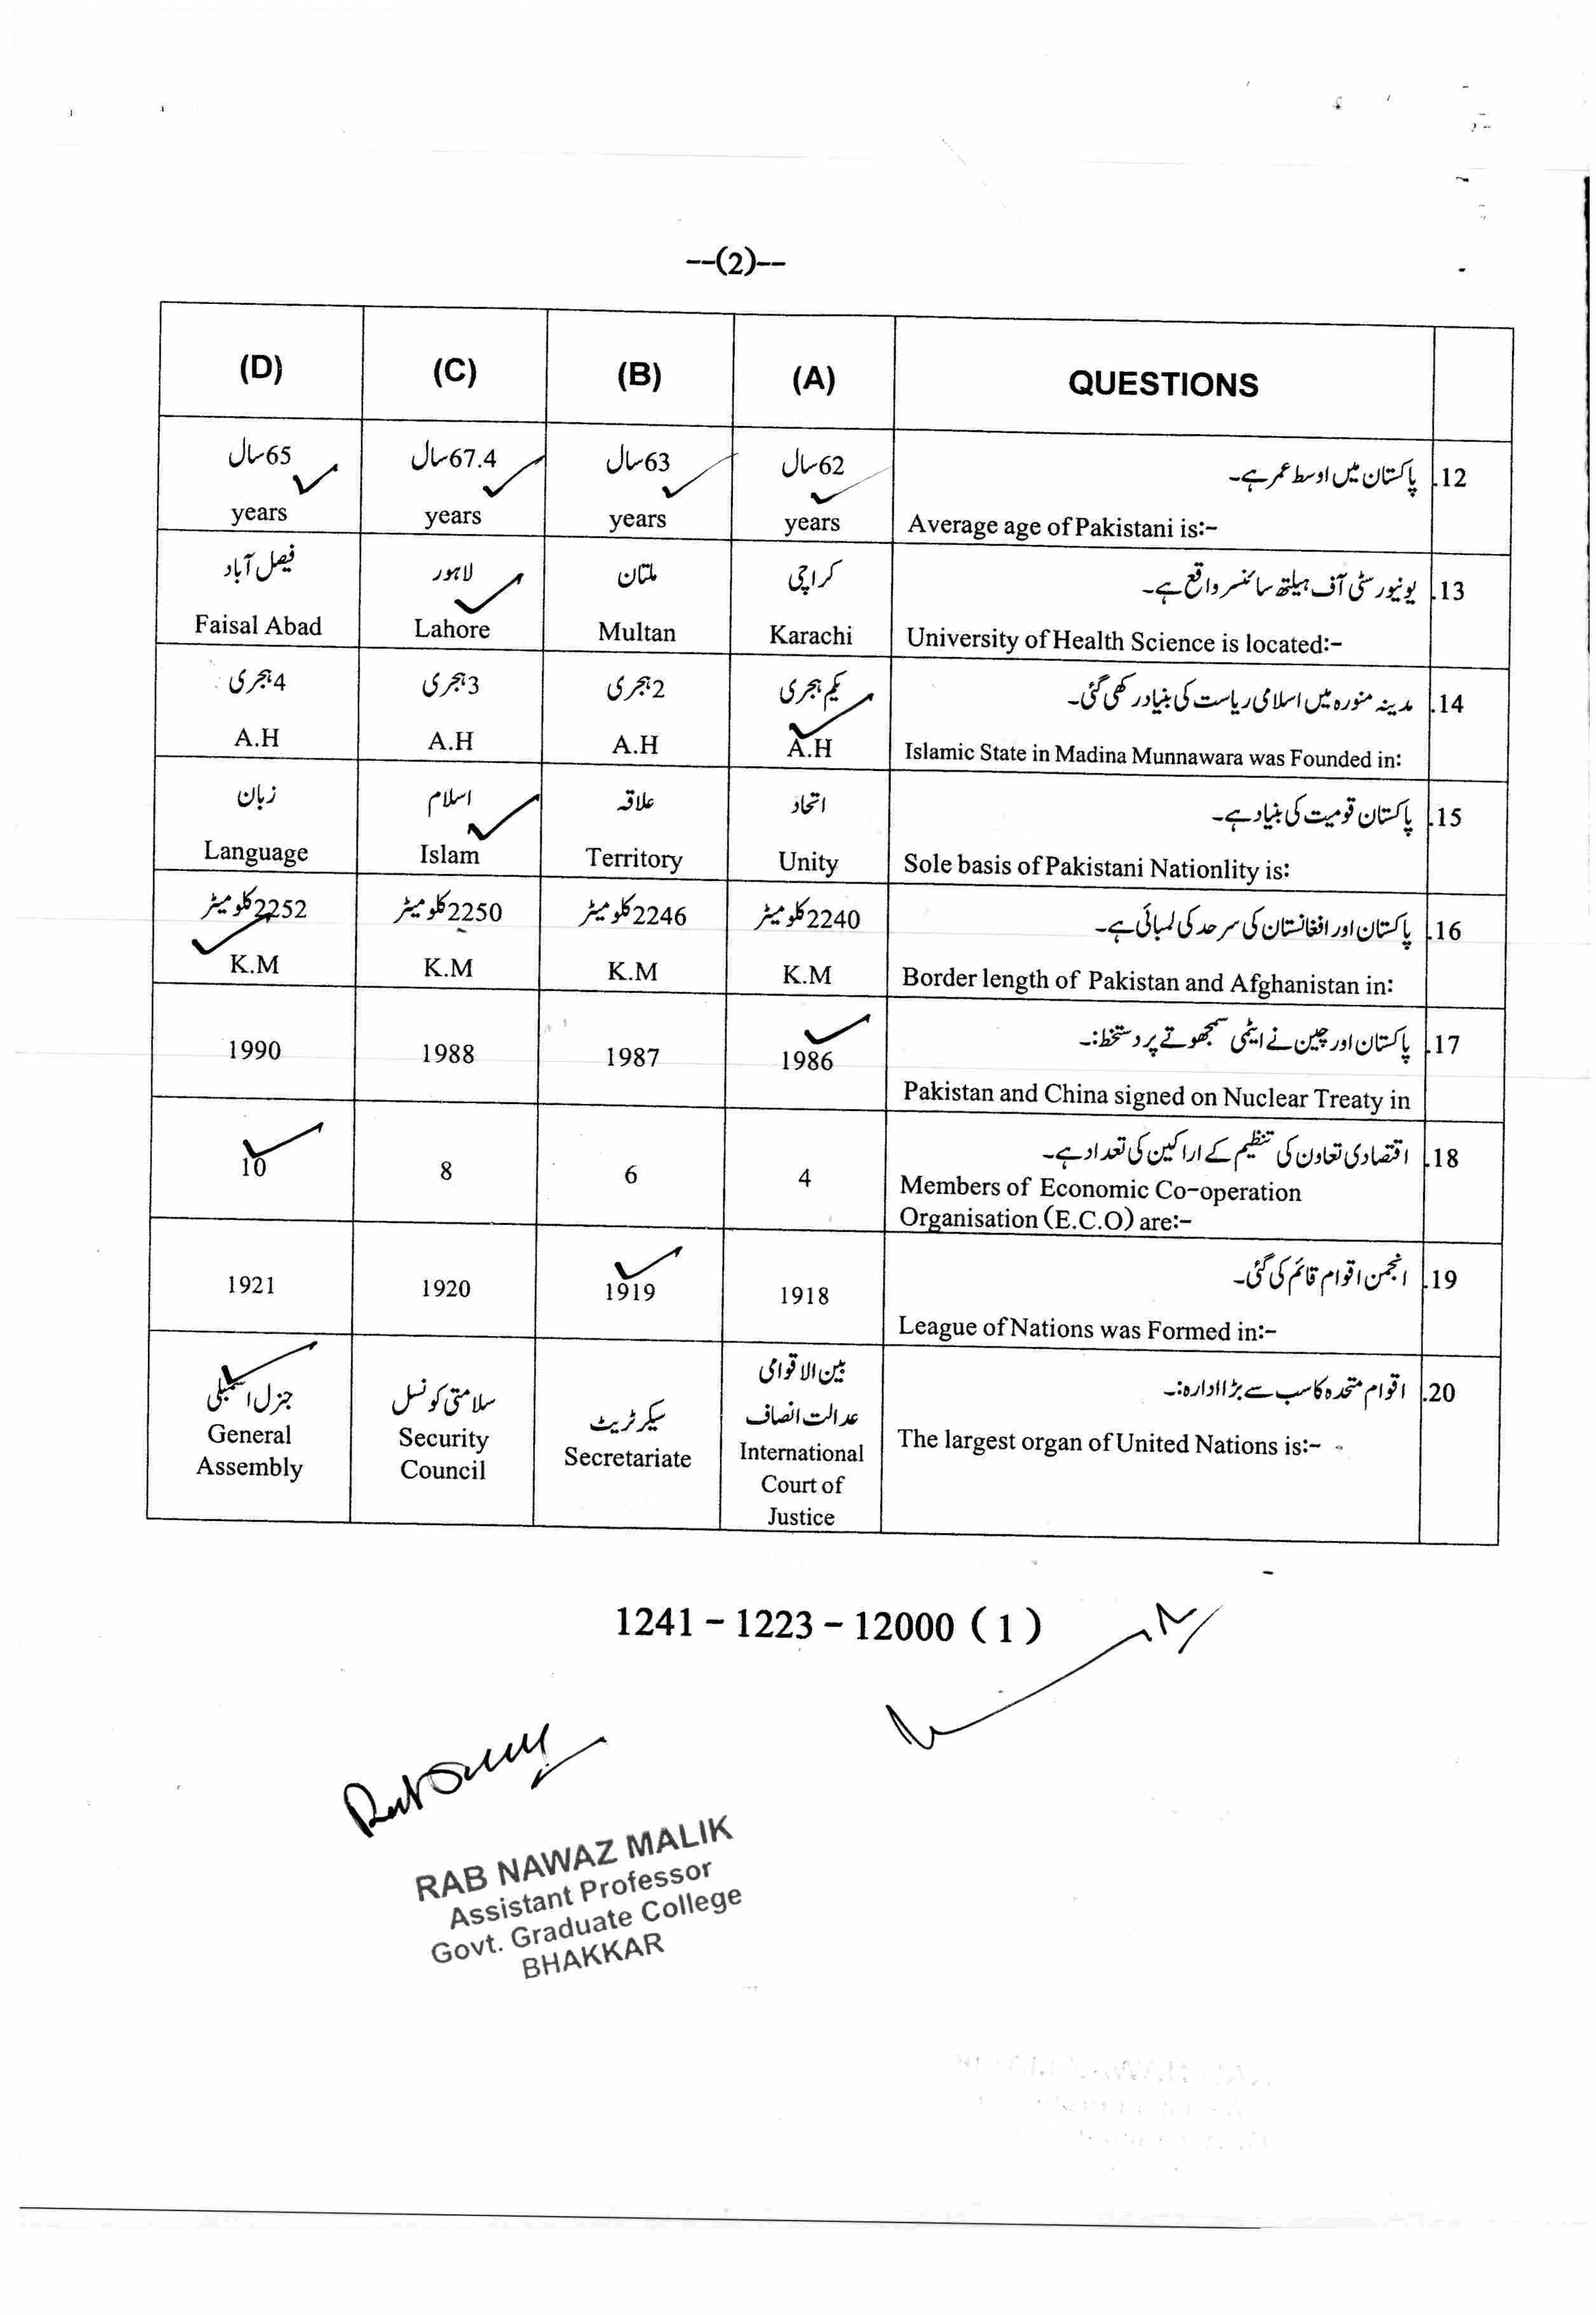 --(2)--
(D) (C) (B) (A) QUESTIONS
65سال 67.4سال 63سال 62سال پاکستان میں اوسط عمر ہے۔ .12
years years years years Average age of Pakistani is:-
فیصل آباد لاہور ملتان کراچی یونیورسٹی آف ہیلتھ سائنسر واقع ہے۔ .13
Faisal Abad Lahore Multan Karachi University of Health Science is located:-
4ہجری 3ہجری 2ہجری یکم ہجری مدینہ منورہ میں اسلامی ریاست کی بنیاد رکھی گئی۔ .14
A.H A.H A.H A.H Islamic State in Madina Munnawara was Founded in:
زبان اسلام علاقہ اتحاد پاکستان قومیت کی بنیاد ہے۔ .15
Language Islam Territory Unity Sole basis of Pakistani Nationlity is:
2252کلومیٹر 2250کلومیٹر 2246کلومیٹر 2240کلومیٹر پاکستان اور افغانستان کی سرحد کی لمبائی ہے۔ .16
K.M K.M K.M K.M Border length of Pakistan and Afghanistan in:
1990 1988 1987 1986 پاکستان اور چین نے ایٹمی سمجھوتے پر دستخط:۔ .17
Pakistan and China signed on Nuclear Treaty in
10 8 6 4 اقتصادی تعاون کی تنظیم کے اراکین کی تعداد ہے۔ .18
Members of Economic Co-operation
Organisation (E.C.O) are:-
1921 1920 1919 1918 انجمن اقوام قائم کی گئی۔ .19
League of Nations was Formed in:-
جنرل اسمبلی سلامتی کونسل سیکرٹریٹ بین الاقوامی عدالت انصاف اقوام متحدہ کا سب سے بڑا ادارہ:۔ .20
General Assembly Security Council Secretariate International Court of Justice The largest organ of United Nations is:-
1241 - 1223 - 12000 (1)
RAB NAWAZ MALIK
Assistant Professor
Govt. Graduate College
BHAKKAR